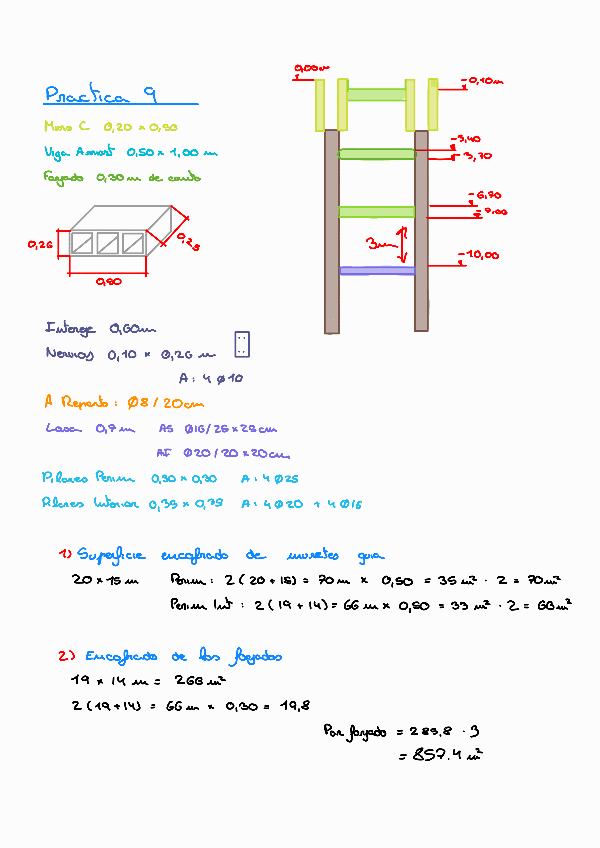 Practica 9
Muro C 0,20 x 0,50
Viga Amort 0,50 x 1,00 m
Forjado 0,30 m de canto
0,00m
-0,10m
-3,40
-3,70
-6,70
-7,00
3m
-10,00
0,26
0,25
0,80
Intereje 0,60m
Nervios 0,10 x 0,26 m
A: 4 Ø10
A Reparto: Ø8 / 20cm
Losa 0,7m AS Ø16/25x25cm
AI Ø20/20x20cm
Pilares Perim 0,30 x 0,30 A: 4Ø25
Pilares Interior 0,35 x 0,35 A: 4Ø20 + 4Ø16
1) Superficie encofrado de muretes guia
20 x 15 m Perim: 2(20+15) = 70m x 0,50 = 35 m² · 2 = 70m²
Perim Int: 2(19+14) = 66 m x 0,50 = 33 m² · 2 = 66m²
2) Encofrado de los forjados
19 x 14 m = 266m²
2(19+14) = 66m x 0,30 = 19,8
Por forjado = 285,8 · 3
= 857.4 m²